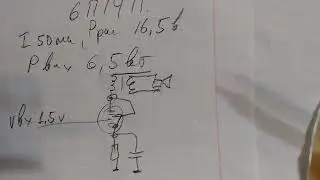 6П14П.
I 50ма, Pрас 16,5в
Pвых 6,5вт
Uвх 1,5v